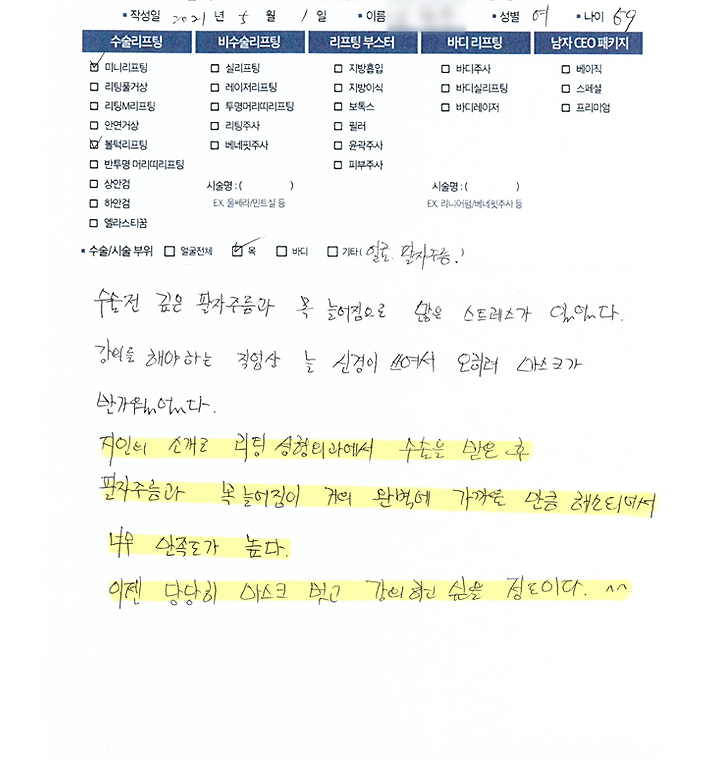 작성일 2021 년 5 월 1 일 이름 성별 여 나이 59
수술리프팅 비수술리프팅 리프팅 부스터 바디 리프팅 남자 CEO 패키지
미니리프팅 실리프팅 지방흡입 바디주사 베이직
리팅풀거상 레이저리프팅 지방이식 바디실리프팅 스페셜
리팅M리프팅 투명머리띠리프팅 보톡스 바디레이저 프리미엄
안면거상 리팅주사 필러
볼턱리프팅 베네핏주사 윤곽주사
반투명 머리띠리프팅 피부주사
상안검 시술명 : ( ) 시술명 : ( )
하안검 EX. 울쎄라/민트실 등 EX. 리니어펌/베네핏주사 등
엘라스티꿈
수술/시술 부위 얼굴전체 목 바디 기타( 얼굴. 팔자주름. )
수술전 깊은 팔자주름과 목 늘어짐으로 많은 스트레스가 있었다.
강의를 해야하는 직업상 늘 신경이 쓰여서 오히려 마스크가
반가웠었다.
지인의 소개로 리팅성형외과에서 수술을 받은 후
팔자주름과 목늘어짐이 거의 완벽에 가까울 만큼 해소되어서
너무 만족도가 높다.
이젠 당당히 마스크 벗고 강의하고 싶을 정도이다. ^^